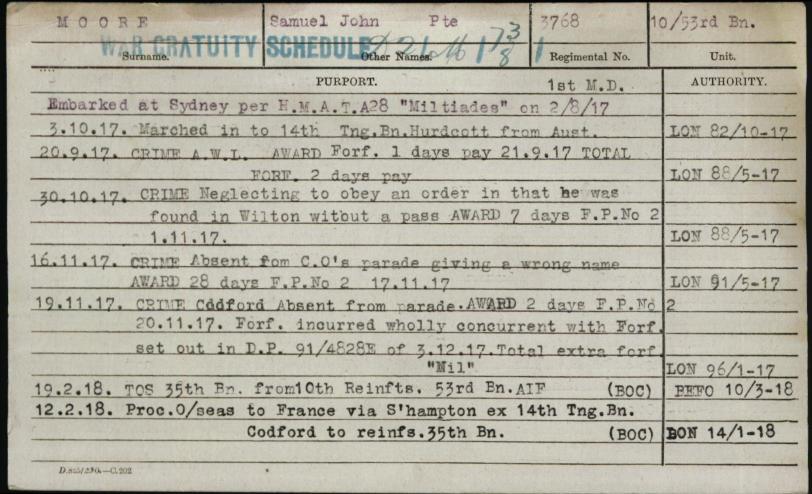 MOORE Samuel John Pte 3768 10/53rd Bn.
WAR GRATUITY SCHEDULE
Surname. Other Names. Regimental No. Unit.
PURPORT. 1st M.D. AUTHORITY.
Embarked at Sydney per H.M.A.T.A28 "Miltiades" on 2/8/17
3.10.17. Marched in to 14th Tng.Bn.Hurdcott from Aust. LON 82/10-17
20.9.17. CRIME A.W.L. AWARD Forf. 1 days pay 21.9.17 TOTAL
FORF. 2 days pay LON 88/5-17
30.10.17. CRIME Neglecting to obey an order in that he was
found in Wilton witbut a pass AWARD 7 days F.P.No 2
1.11.17. LON 88/5-17
16.11.17. CRIME Absent fom C.O's parade giving a wrong name
AWARD 28 days F.P.No 2 17.11.17 LON 91/5-17
19.11.17. CRIME Codford Absent from parade.AWARD 2 days F.P.No 2
20.11.17. Forf. incurred wholly concurrent with Forf.
set out in D.P. 91/4828E of 3.12.17.Total extra forf.
"Nil" LON 96/1-17
19.2.18. TOS 35th Bn. from10th Reinfts. 53rd Bn.AIF (BOC) BEFO 10/3-18
12.2.18. Proc.O/seas to France via S'hampton ex 14th Tng.Bn.
Codford to reinfs.35th Bn. (BOC) LON 14/1-18